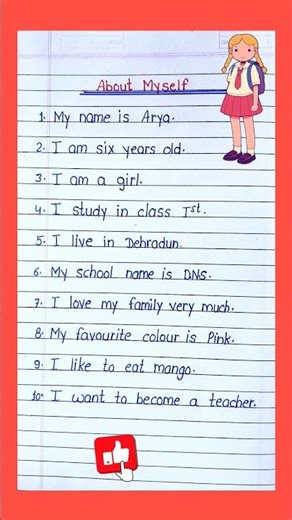 About Myself
1. My name is Arya.
2. I am six years old.
3. I am a girl.
4. I study in class Ist.
5. I live in Dehradun.
6. My school name is DNS.
7. I love my family very much.
8. My favourite colour is Pink.
9. I like to eat mango.
10. I want to become a teacher.